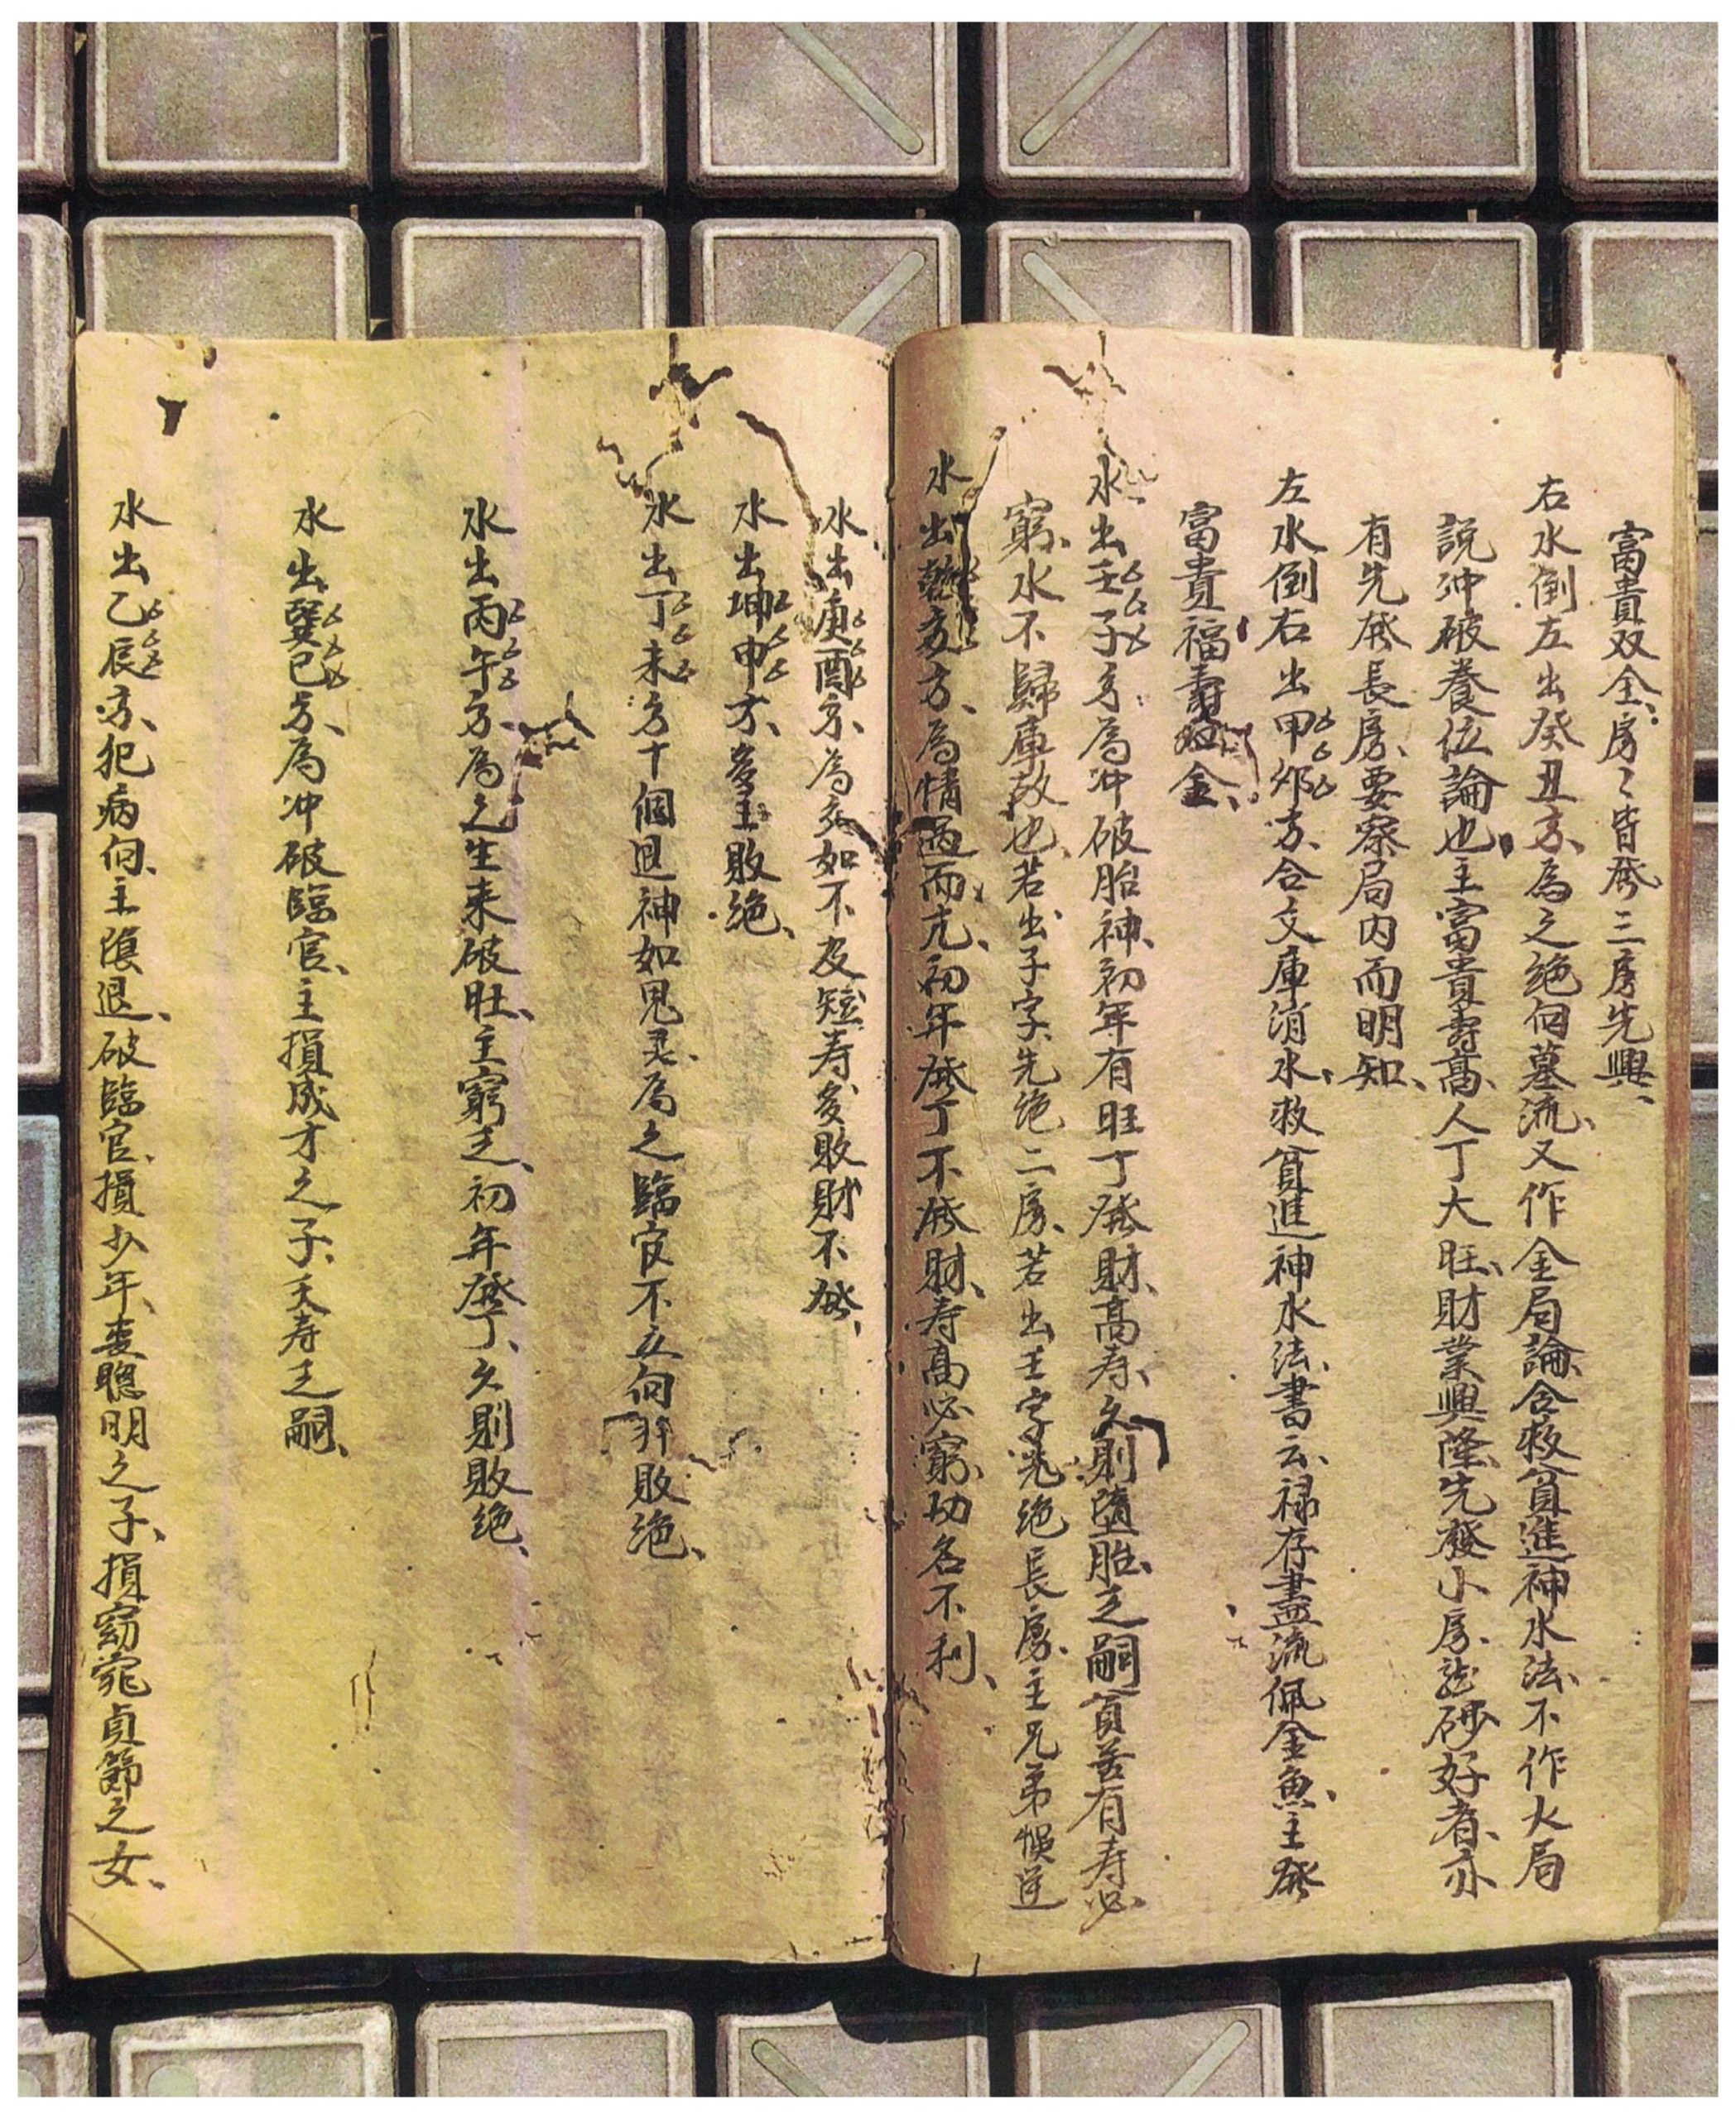 富貴双全、房〻皆發三房先興、
右水倒左出癸丑方、為之絕向墓流、又作金局論、合救貧進神水法、不作火局
說冲破養位論也、主富貴壽高、人丁大旺、財業興隆、先發小房、砂好者、亦
有先發長房、要察局内而明知、
左水倒右出甲卯方、合文庫消水、救貧進神水法、書云、祿存盡流佩金魚、主發
富貴福壽双全、
水出壬子方為冲破胎神、初年有旺丁發財、高寿、久則墮胎、乏嗣貧苦、有寿必
窮、水不歸庫故也、若出子字、先绝二房、若出壬字、先绝長房、主兄弟悞逆
水出乾亥方、為情過而亢、初年發丁不發財、寿高必窮、功名不利、
水出庚酉方、為交如不及、短寿、多敗財不發、
水出坤申方、多主敗绝、
水出丁未方十個退神如鬼灵、為之臨官不立向、非敗绝、
水出丙午方、為之生来破旺、主窮乏、初年發丁、久則敗绝、
水出巽巳方、為冲破臨官、主損成才之子、夭寿乏嗣、
水出乙辰方、犯病向、主退、破臨官、損少年、喪聰明之子、損窈窕貞節之女、